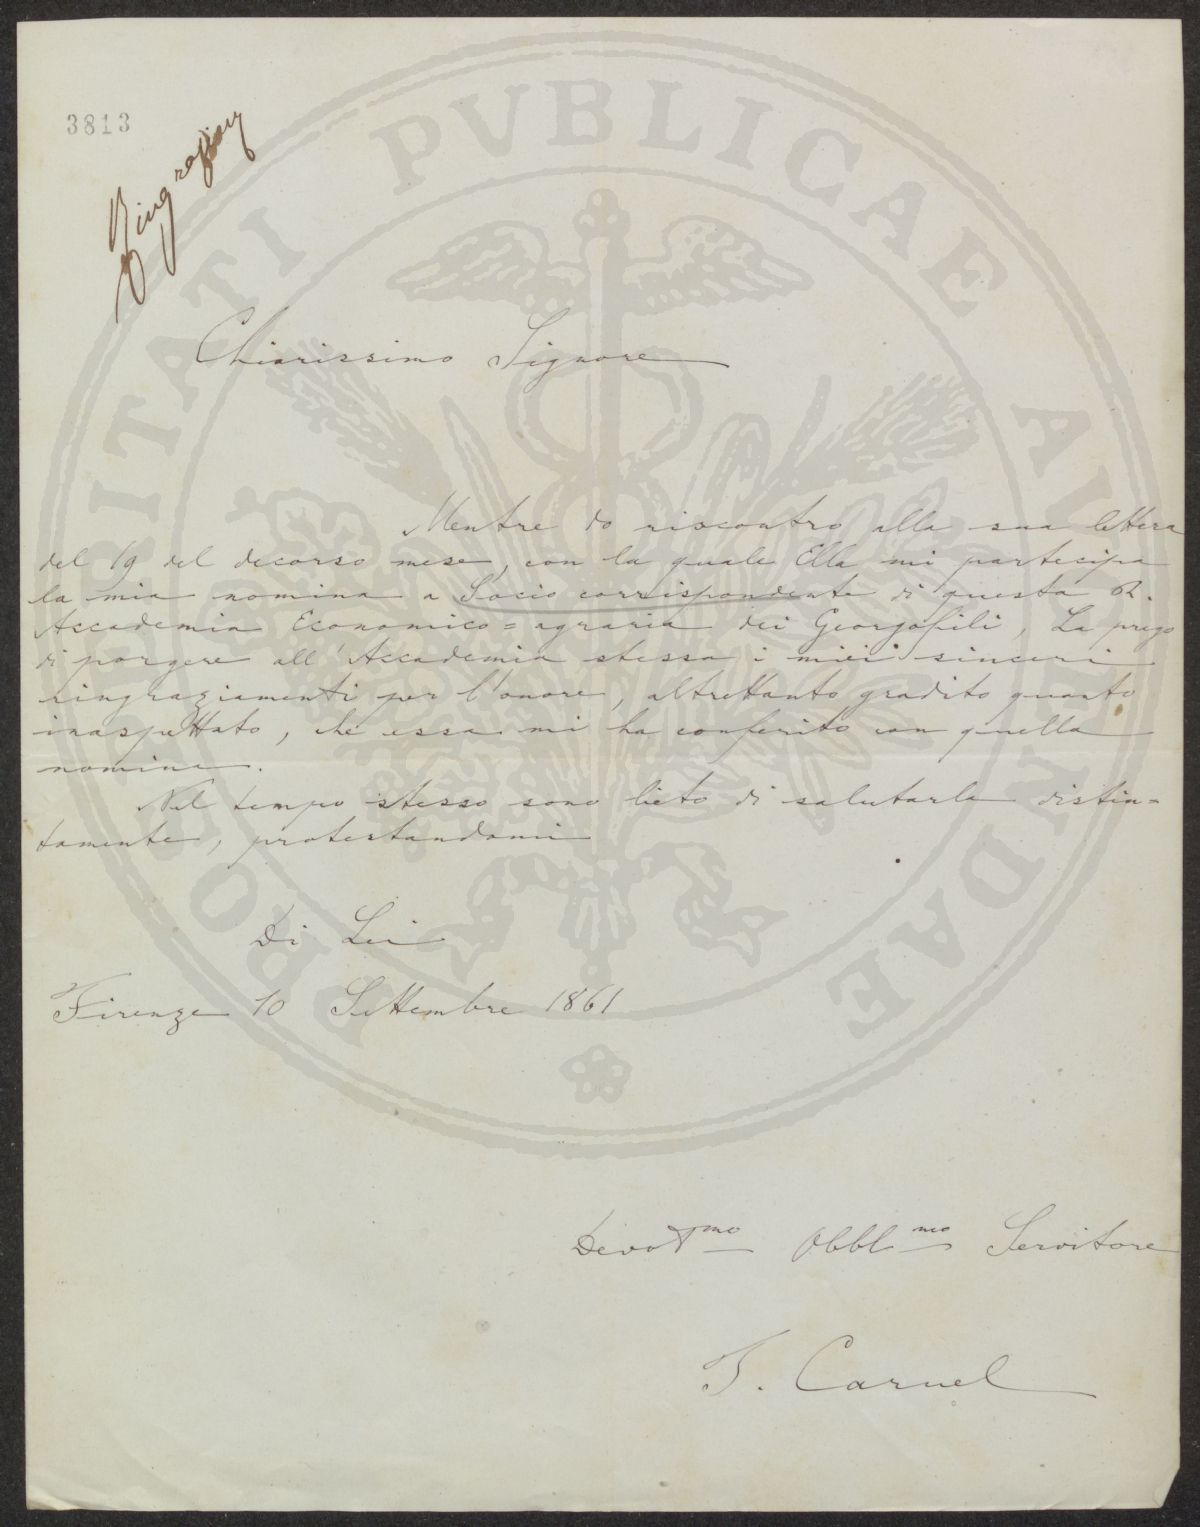 3813
Ringraziam
Chiarissimo Signore
Mentre do riscontro alla sua lettera
del 19 del decorso mese, con la quale Ella mi partecipa
la mia nomina a Socio corrispondente di questa R.
Accademia Economico=agraria dei Georgofili, La prego
di porgere all'Accademia stessa i miei sinceri
ringraziamenti per l'onore, altrettanto gradito quanto
inaspettato, che essa mi ha conferito con quella
nomina.
Nel tempo stesso sono lieto di salutarla distin=
tamente, protestandomi
Di Lei
Firenze 10 Settembre 1861
Devotmo Obblmo Servitore
T. Caruel
PROSPERITATI PVBLICAE AVGENDAE